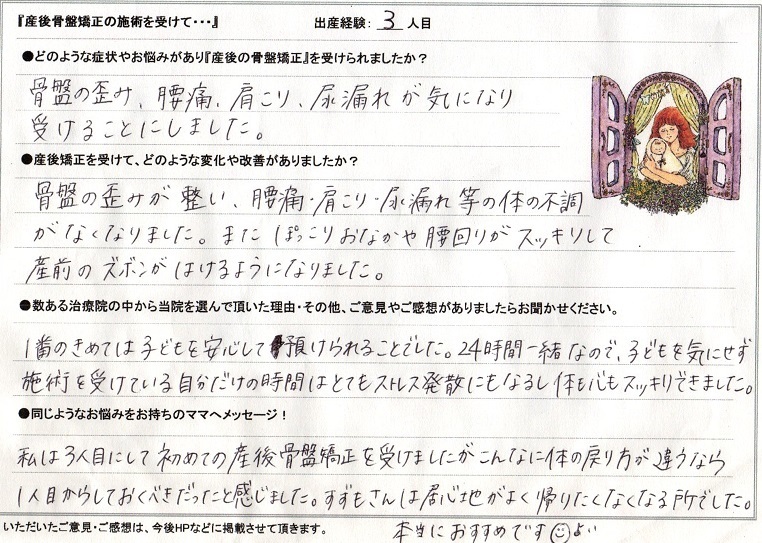 『産後骨盤矯正の施術を受けて・・・』 出産経験: 3 人目
●どのような症状やお悩みがあり『産後の骨盤矯正』を受けられましたか?
骨盤の歪み、腰痛、肩こり、尿漏れが気になり
受けることにしました。
●産後矯正を受けて、どのような変化や改善がありましたか?
骨盤の歪みが整い、腰痛・肩こり・尿漏れ等の体の不調
がなくなりました。また ぽっこりおなかや腰回りがスッキリして
産前のズボンがはけるようになりました。
●数ある治療院の中から当院を選んで頂いた理由・その他、ご意見やご感想がありましたらお聞かせください。
1番のきめては子どもを安心して預けられることでした。24時間一緒なので、子どもを気にせず
施術を受けている自分だけの時間はとてもストレス発散にもなるし体も心もスッキリできました。
●同じようなお悩みをお持ちのママへメッセージ!
私は3人目にして初めての産後骨盤矯正を受けましたがこんなに体の戻り方が違うなら
1人目からしておくべきだったと感じました。すずもさんは居心地がよく帰りたくなくなる所でした。
いただいたご意見・ご感想は、今後HPなどに掲載させて頂きます。 本当におすすめです